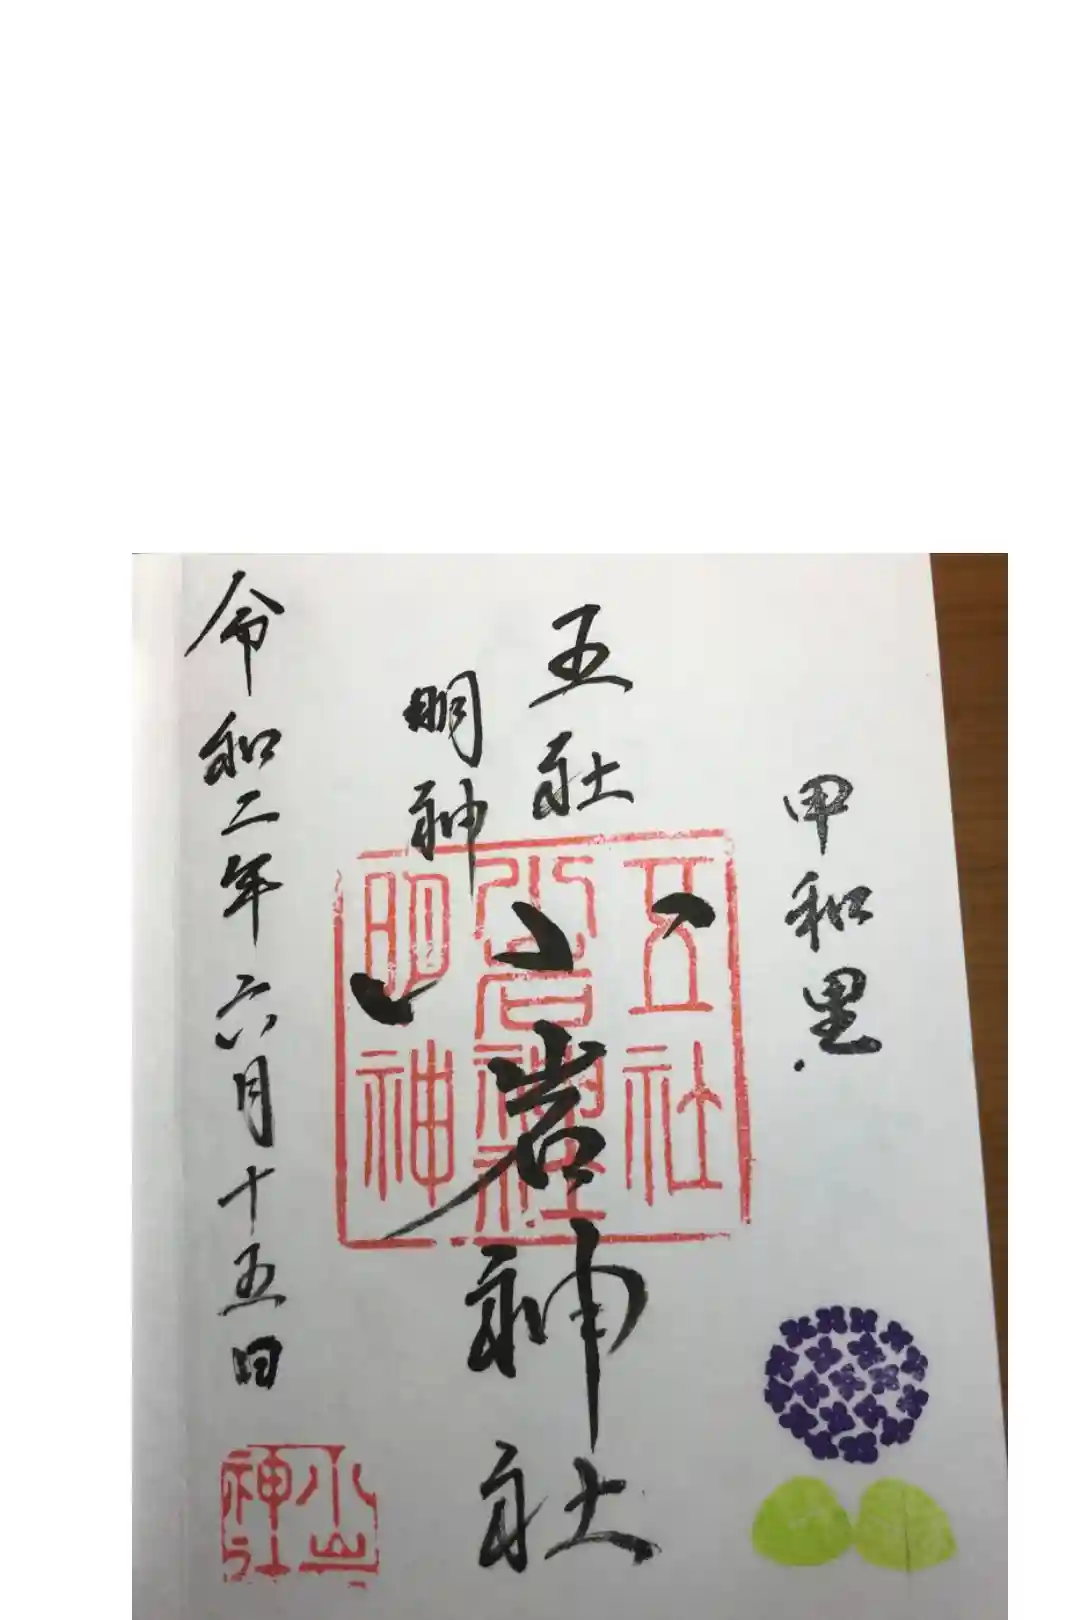 甲和里
五社
明神
小岩神社
令和二年六月十五日
五社
小岩神社
明神
神社